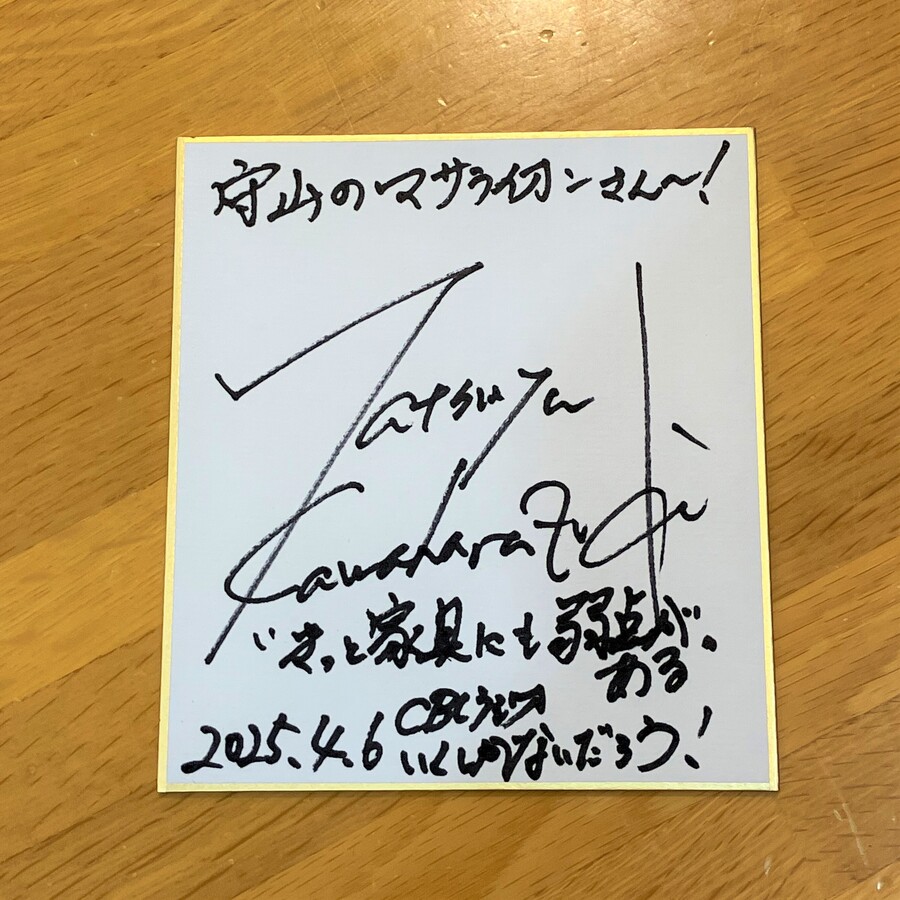 守山のマサライオンさん〜!
Tatsuya
"きっと家具にも弱点が
ある"
2025.4.6 CBCラジオ
いくしかないだろう!